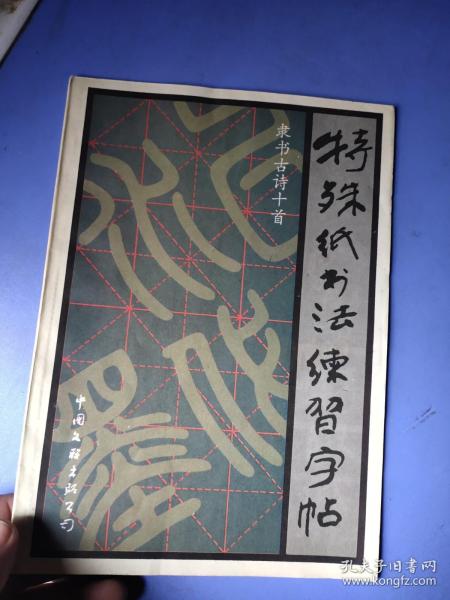 特殊纸书法練習字帖
隶书古诗十首
中国文联出版公司
孔夫子旧书网
www.kongfz.com